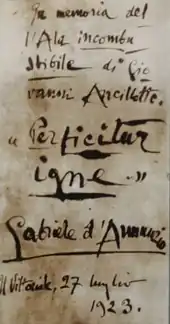 In memoria del
l'Ala incombu
stibile di Gio
vanni Ancillotto.
« Perficitur
igne. »
Gabriele d'Annunzio
Il Vittoriale, 27 luglio
1923.